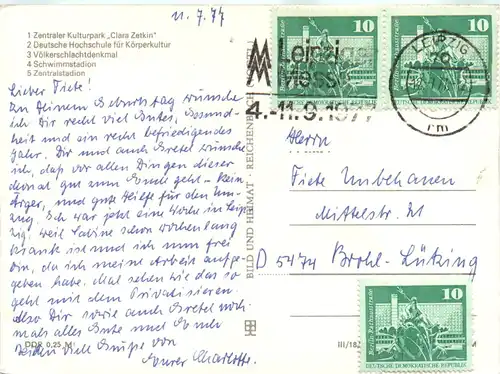 11.7.77
1 Zentraler Kulturpark „Clara Zetkin"
2 Deutsche Hochschule für Körperkultur
3 Völkerschlachtdenkmal
4 Schwimmstadion
5 Zentralstadion
Lieber Fiete!
Zu Deinem Geburtstag wünsche
ich Dir recht viel Gutes, Gesund-
heit und ein recht befriedigendes
Jahr. Dir und auch Gretel wünsche
ich, daß vor allen Dingen dieser
gut zum Ende geht – Kein
Ärger, und gute Hilfe für den Um-
zug. Ich war jetzt eine Woche in Leip-
zig, weil Sabine schon wochenlang
krank ist und ich nun frei
bin, da ich meine Arbeit aufge-
geben habe. Mal sehen wie das so
geht mit dem Privatisieren.
Also Dir sowie auch Gretel noch-
mals alles Gute und
viele Grüße von
Eurer Charlotte.
DDR 0,25 M
BILD UND HEIMAT REICHENBACH
Leipzig
4.-11.9.1977
LEIPZIG
rm
10
10
DEUTSCHE DEMOKRATISCHE REPUBLIK
Herrn
Fiete Unbehauen
Mittelstr. 21
D 5474 Brohl-Lützing
III/18/
M
Berlin, Rathausstraße
10
DEUTSCHE DEMOKRATISCHE REPUBLIK